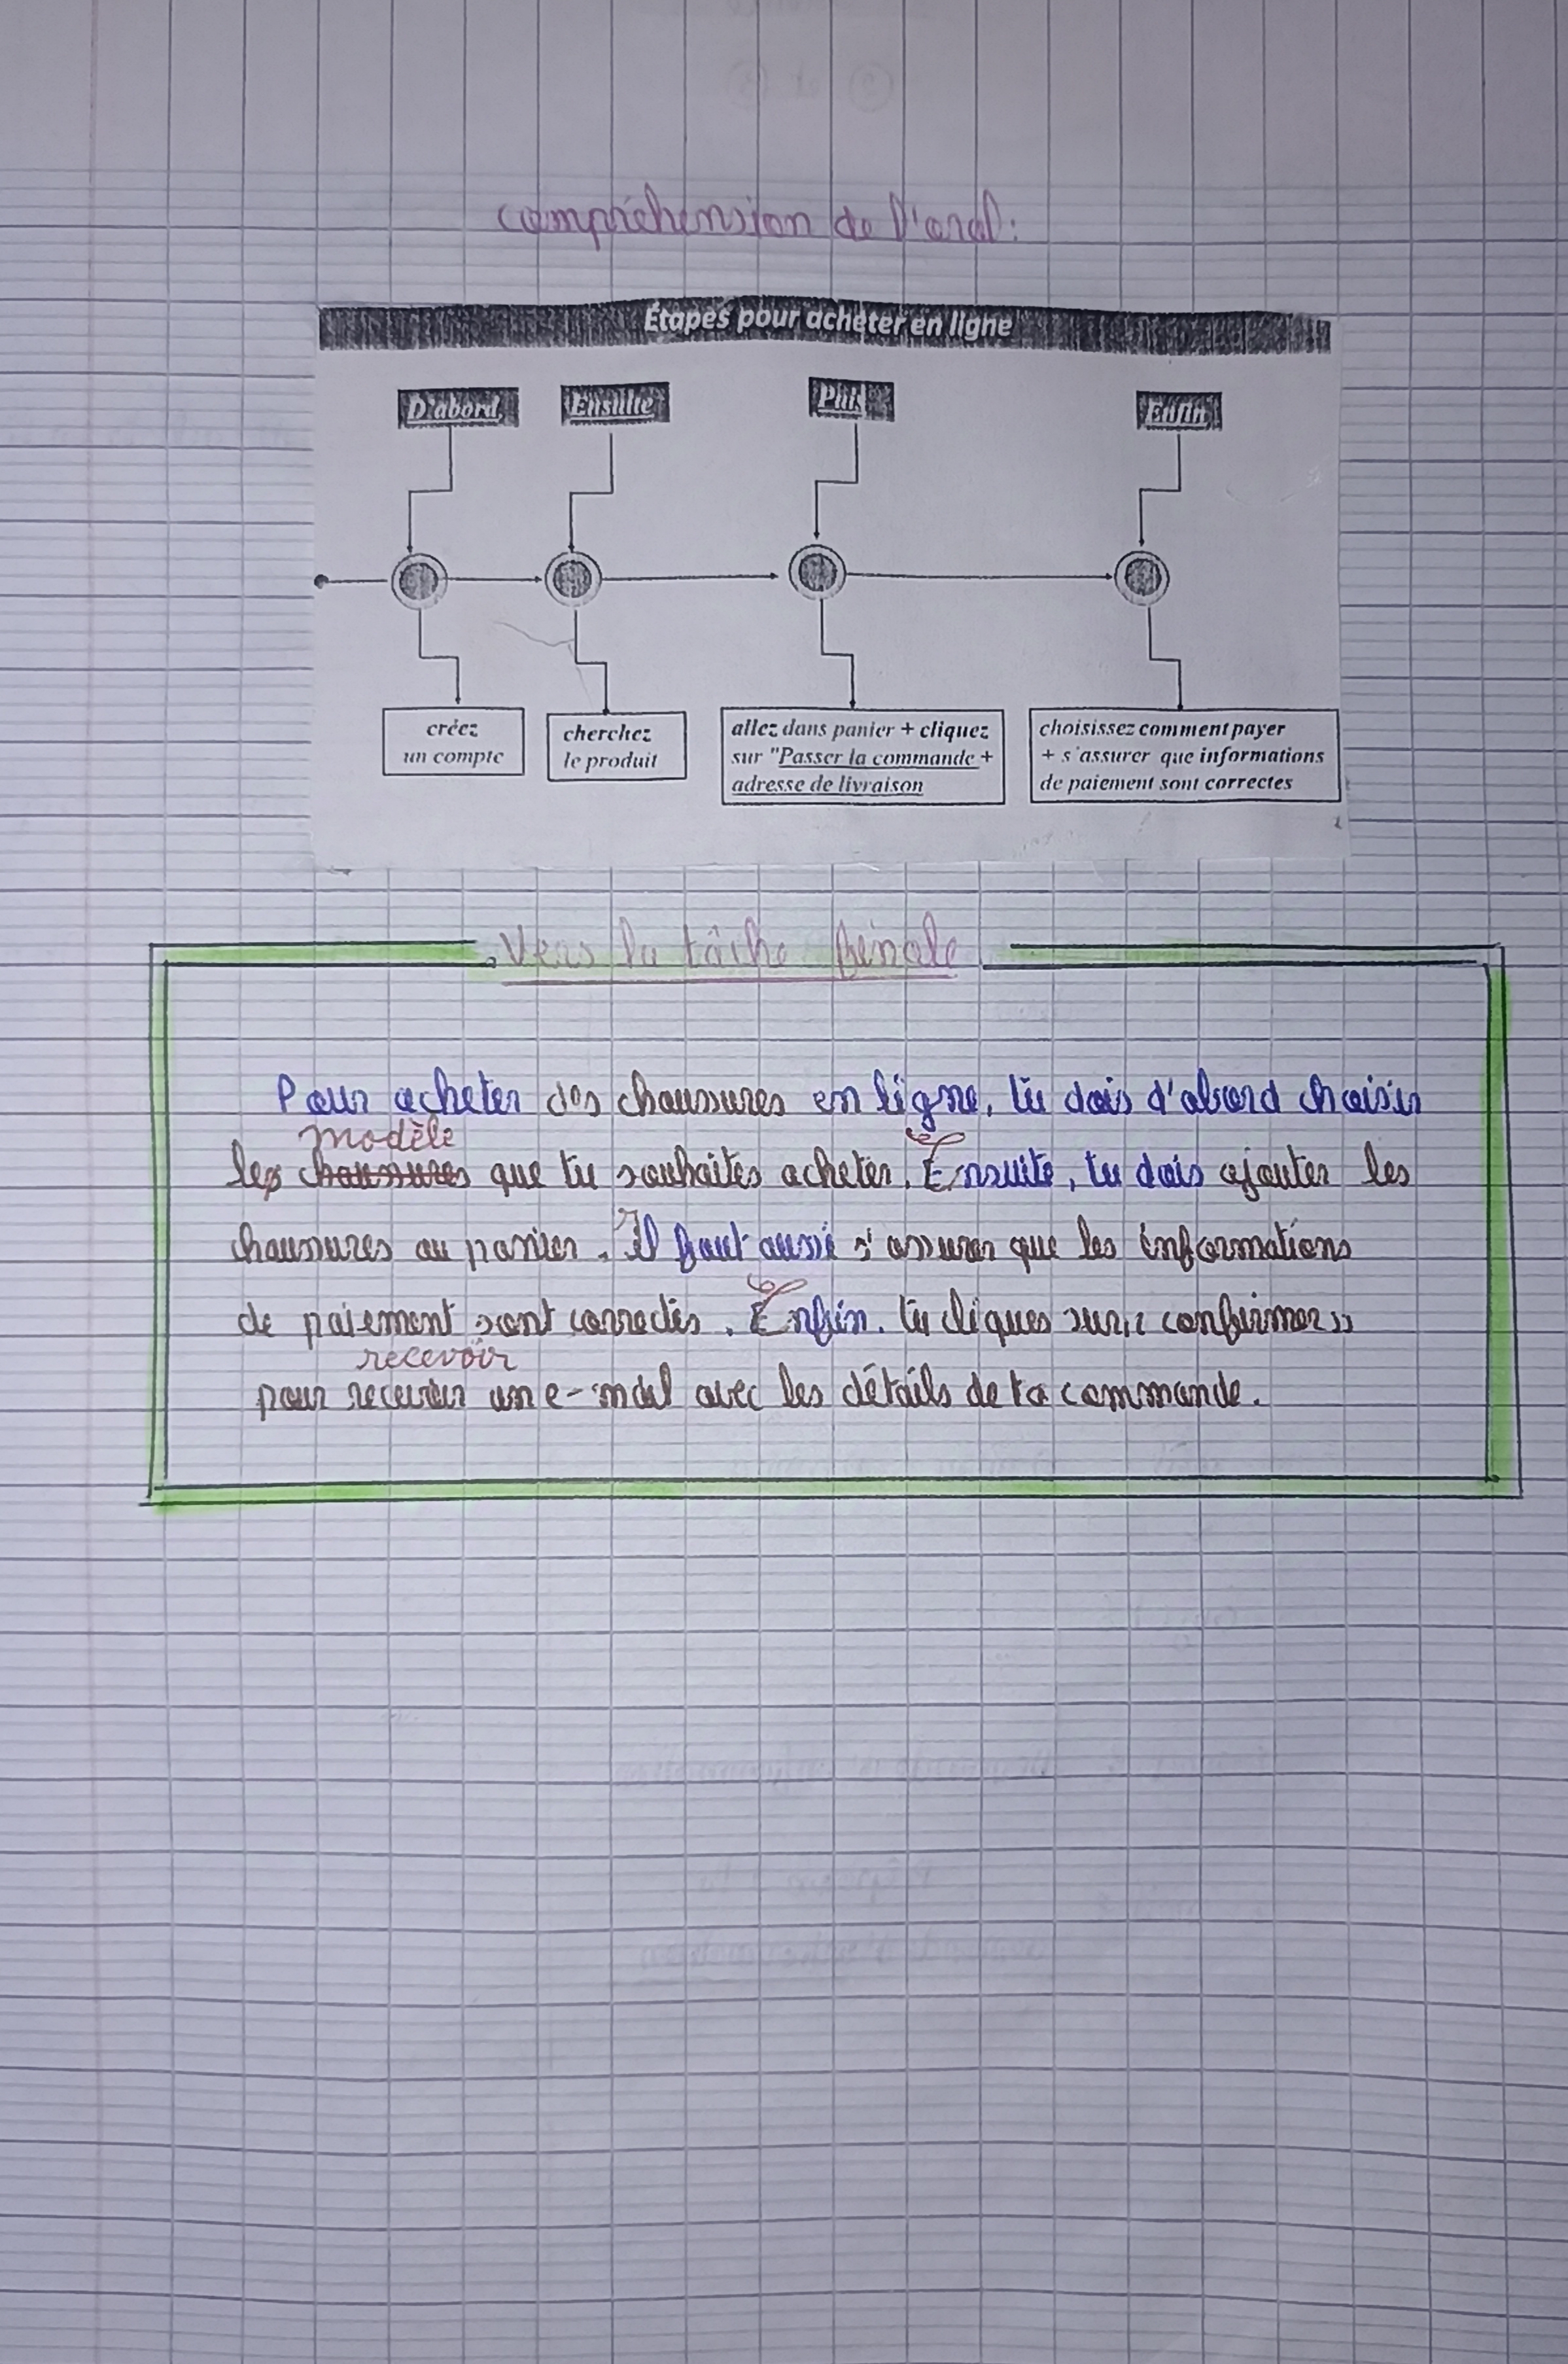 compréhension de l'oral:
Étapes pour acheter en ligne
D'abord Ensuite Puis Enfin
créez
un compte
cherchez
le produit
allez dans panier + cliquez
sur "Passer la commande +
adresse de livraison
choisissez comment payer
+ s'assurer que informations
de paiement sont correctes
Vers la tâche finale
Pour acheter des chaussures en ligne, tu dois d'abord choisir
modèle
les chaussures que tu souhaites acheter. Ensuite, tu dois ajouter les
chaussures au panier. Il faut aussi s'assurer que les informations
de paiement sont correctes. Enfin. tu cliques sur « confirmer »
recevoir
pour recevoir un e-mail avec les détails de ta commande.